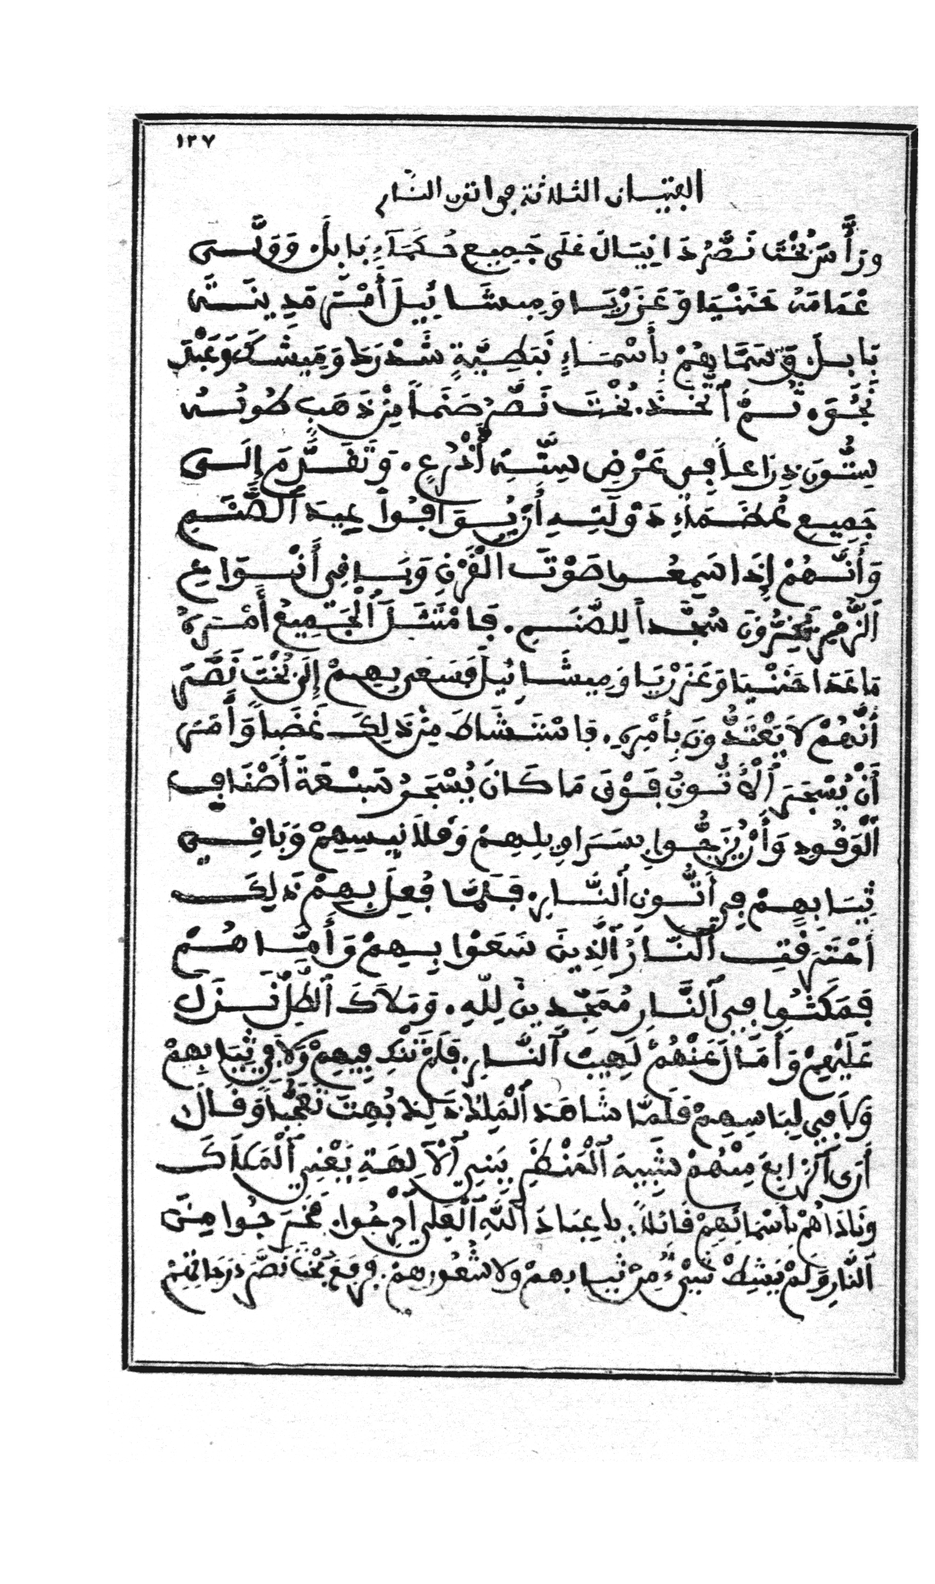 ١٢٧
الفتيان الثلاثة في اتون النار
ورَأَّسَ بُخْتَ نَصَّرُ دَانِيَالَ عَلَى جَمِيعِ حُكَمَآءِ بَابِلَ. وَوَلَّى
عَمَامَهُ حَنَنْيَا وَعَزَرْيَا وَمِيشَائِيلَ أَمْرَ مَدِينَةِ
بَابِلَ. وَسَمَّاهُمْ بِأَسْمَاءٍ نَبَطِيَّةٍ شَدْرَخَ وَمِيشَكَ وَعَبْدَ
نَجُوَ. ثُمَّ ٱتَّخَذَ. بُخْتَ نَصَّرُ صَنَماً مِنْ ذَهَبٍ طُولُهُ
سِتُّونَ ذِرَاعاً فِي عَرْضِ سِتَّةِ أَذْرُعٍ. وَتَقَدَّمَ إِلَى
جَمِيعِ عُظَمَاءِ دَوْلَتِهِ أَنْ يُوَافُوا عِيدَ ٱلصَّنَمِ
وَأَنَّهُمْ إِذَا سَمِعُوا صَوْتَ الْقَرْنِ وَبَاقِي أَنْوَاعِ
ٱلزَّمْرِ يَخِرُّونَ سُجَّداً لِلصَّنَمِ. فَامْتَثَلَ ٱلْجَمِيعُ أَمْرَهُ
مَا عَدَا حَنَنْيَا وَعَزَرْيَا وَمِيشَائِيلَ فَسَعَى بِهِمْ إِلَى بُخْتَ نَصَّرَ
أَنَّهُمْ لَا يَعْتَدُّونَ بِأَمْرِهِ. فَاسْتَشَاطَ مِنْ ذَلِكَ غَضَباً وَأَمَرَ
أَنْ يُسْجَرَ ٱلْأَتُّونُ فَوْقَ مَا كَانَ يُسْجَرُ سَبْعَةَ أَضْعَافِ
ٱلْوَقُودِ وَأَنْ يُزَجُّوا بِسَرَاوِيلِهِمْ وَقَلَانِيسِهِمْ وَبَاقِي
ثِيَابِهِمْ فِي أَتُّونِ ٱلنَّارِ. فَلَمَّا فُعِلَ بِهِمْ ذَلِكَ
احْتَرَقَتِ ٱلنَّارُ ٱلَّذِينَ سَعَوْا بِهِمْ وَأَمَّا هُمْ
فَمَكَثُوا فِي ٱلنَّارِ مُمَجِّدِينَ لِلّهِ. وَمَلَاكَ ٱلطَّلِّ نَزَلَ
عَلَيْهِمْ وَأَمَالَ عَنْهُمْ لَهِيبَ ٱلنَّارِ. فَلَمْ تَنْكِ فِيهِمْ وَلَا فِي ثِيَابِهِمْ
وَلَا فِي لِبَاسِهِمْ فَلَمَّا شَاهَدَ ٱلْمَلِكُ ذَلِكَ بُهِتَ تَعَجُّباً وَقَالَ
أَرَى ٱلرَّابِعَ مِنْهُمْ شَبِيهَ ٱلْمَنْظَرِ بِبَنِي ٱلْآلِهَةِ يَعْنِي ٱلْمَلَاكَ
وَنَادَاهُمْ بِأَسْمَائِهِمْ قَائِلاً: يَا عِبَادَ ٱللّهِ ٱلْعَلِي اخْرُجُوا. فَخَرَجُوا مِنَ
ٱلنَّارِ وَلَمْ يَشِطْ شَيْءٌ مِنْ ثِيَابِهِمْ ولا شُعُورِهِمْ. فَرَفَعَ بُخْتَ نَصَّرُ دَرَجَاتِهِمْ